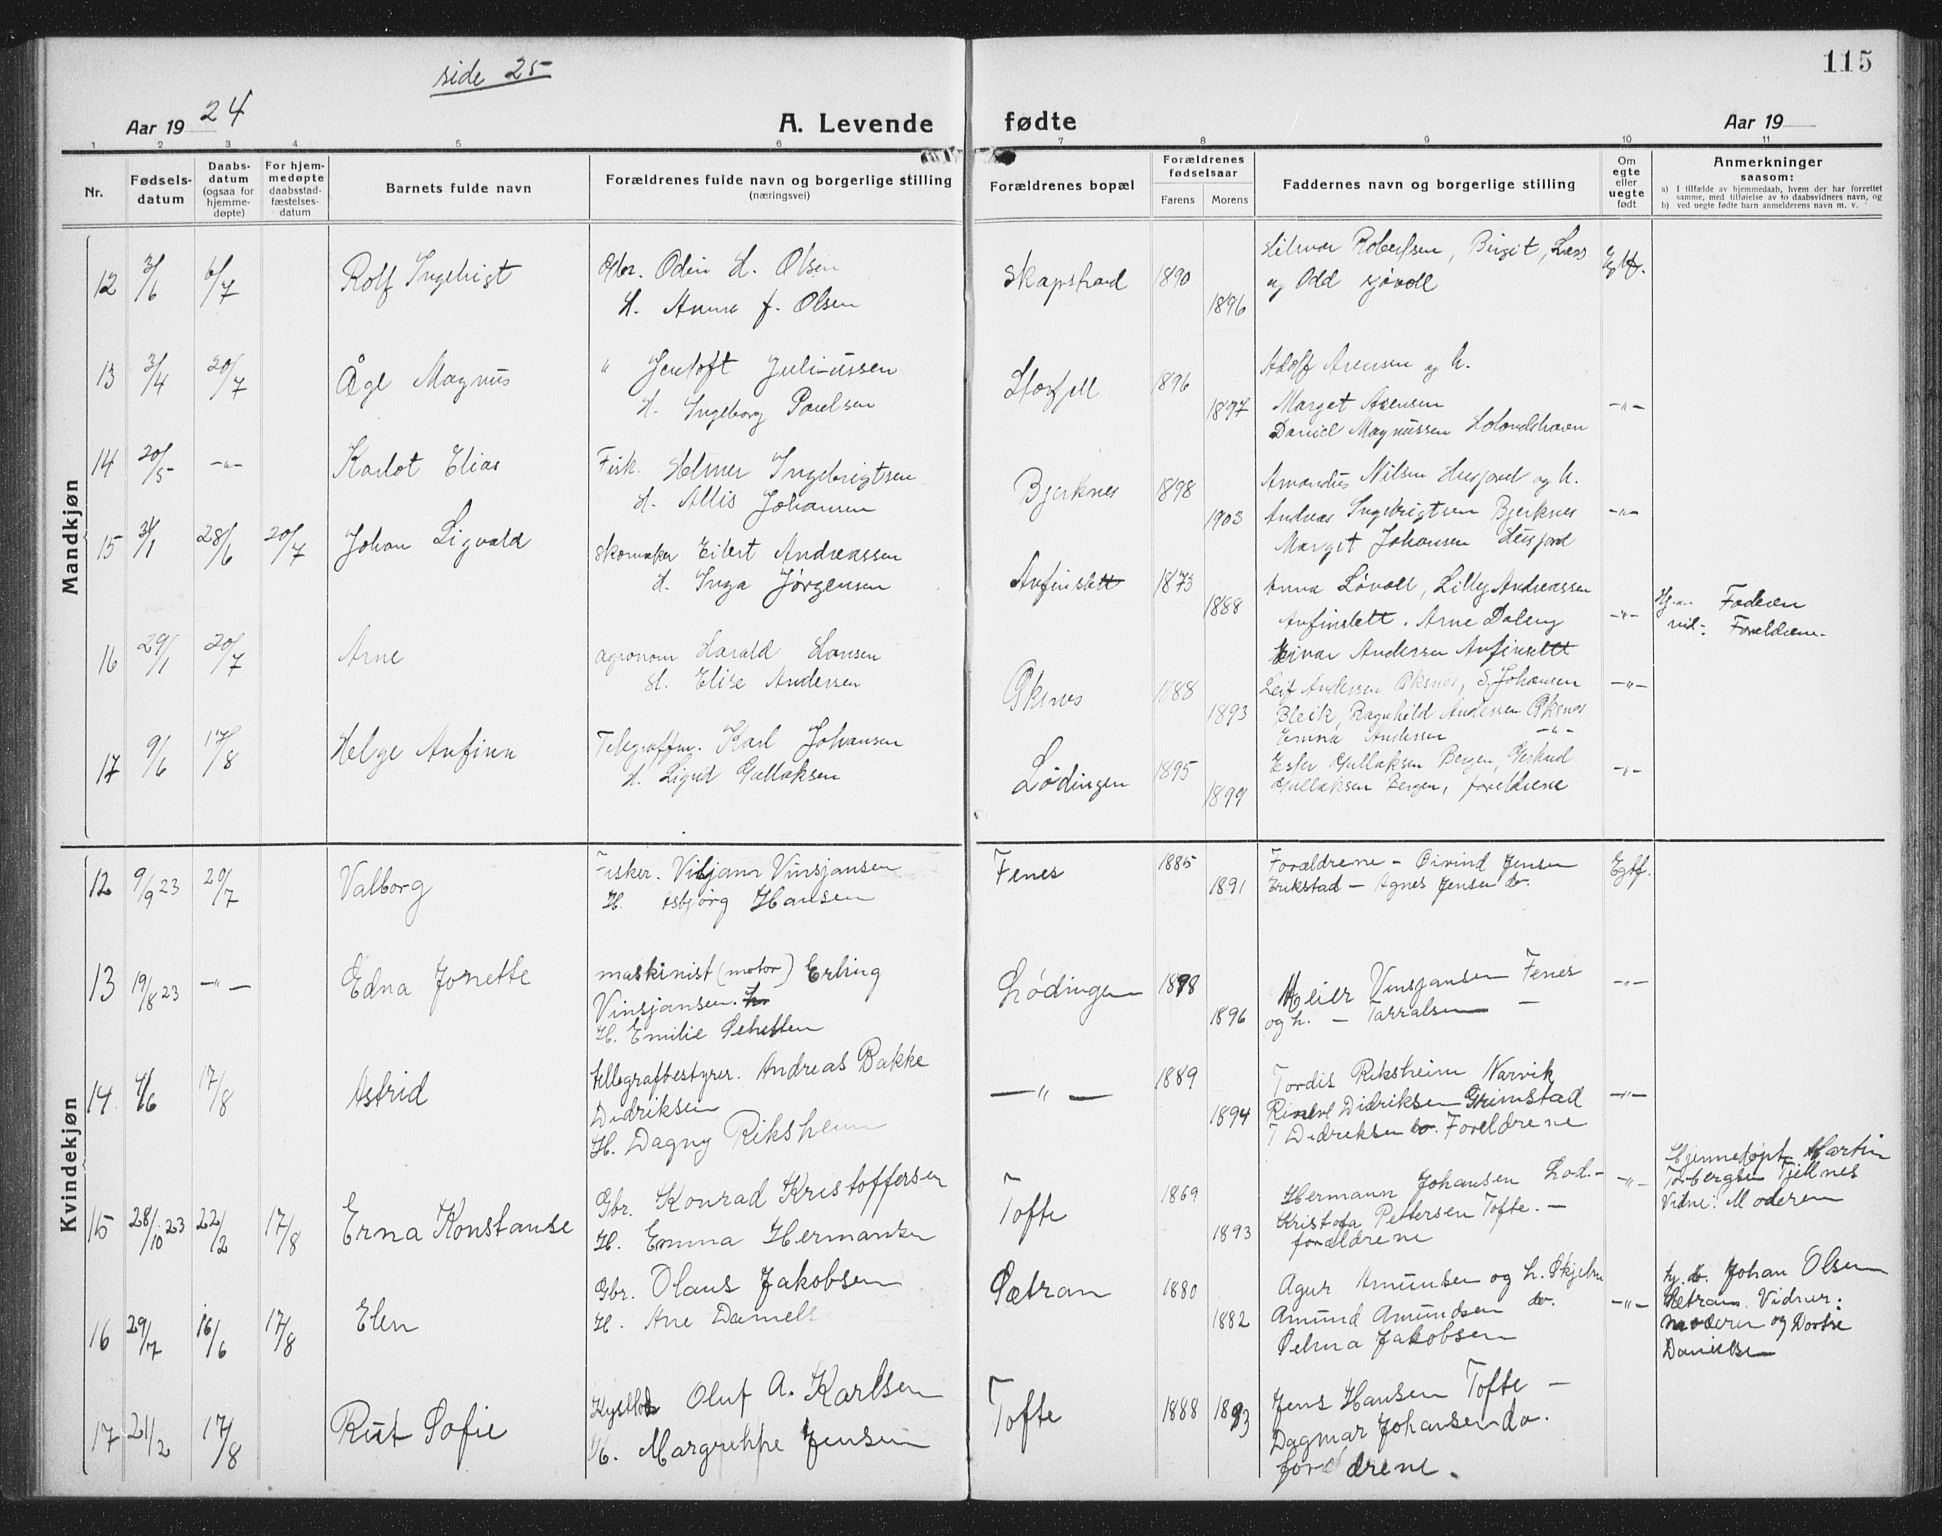 side 25
115
Aar 1924
A. Levende fødte
Aar 19
1 2 3 4 5 6 7 8 9 10 11
Nr.
Fødsels-
datum
Daabs-
datum
(ogsaa for
hjemme-
døpte)
For hjem-
medøpte
daabsstad-
fæstelses-
datum
Barnets fulde navn
Forældrenes fulde navn og borgerlige stilling
(næringsvei)
Forældrenes bopæl
Forældrenes
fødselsaar
Farens Morens
Faddernes navn og borgerlige stilling
Om
egte
eller
uegte
født
Anmerkninger
saasom:
a) I tilfælde av hjemmedaab, hvem der har forrettet
samme, med tilføielse av to daabsvidners navn, og
b) ved uegte fødte barn anmelderens navn m. v.
Mandkjøn
12 3/6 6/7 Rolf Ingebrigt
Gbr. Odin H. Olsen
H. Anna J. Olsen
Skapstrad 1890
1896
Hilmar Robertsen, Birgit, Lars
og Odd Sjøvoll
Egtf.
13 3/4 20/7 Åge Magnus
" Jentoft Juliussen
H. Ingeborg Paulsen
Storfjell 1896
1897
Adolf Arensen og h.
Marget Arensen
Daniel Magnussen Holandshavn
-"-
14 20/5 -"- Karlot Elias
Fisk. Helmer Ingebrigtsen
H. Allis Johansen
Bjerknes 1898
1903
Amandus Nilsen Husjord og h.
Andreas Ingebrigtsen Bjerknes
Margit Johansen Husjord
-"-
15 31/1 28/6 20/7 Johan Sigvald
Skomaker Eilert Andreassen
H. Inga Jørgensen
Anfinslett 1873
1888
Anna Løvoll, Lilly Andreassen
Anfinslett. Arne Doleng
Einar Andersen Anfinslett
-"-
Foreldrene.
16 29/1 20/7 Arne
agronom Harald Hansen
H. Elise Andersen
Øksnes 1888
1893
Leif Andersen Øksnes, S. Johansen
Bleik, Ragnhild Andersen Øksnes
Emma Andersen -"-
-"-
17 9/6 17/8 Helge Anfinn
Telegrafm. Karl Johansen
H. Sigrid Gullaksen
Lødingen 1895
1899
Ester Gullaksen Bergen, Gertrud
Gullaksen Bergen, foreldrene
-"-
Kvindekjøn
12 9/9 23 20/7 Valborg
Fisker. Viljann Vinsjansen
H. Asbjørg Hansen
Fenes 1885
1891
Forældrene - Øivind Jensen
Erikstad - Agnes Jensen do.
Egtf.
13 19/8 23 -"- Edna Jonette
maskinist (motor) Erling
Vinsjansen.
H. Emilie
Lødingen 1898
1896
Meier Vinsjansen Fenes
og h. - Tarralsen -
-"-
14 4/6 17/8 Astrid
tellegrafbestyrer. Andreas Bakke
Didriksen
H. Dagny Riksheim
-"- 1889
1894
Tordis Riksheim Narvik
Didriksen Grimstad
T Didreksen do. Foreldrene
-"-
15 28/10 23 22/2 17/8 Erna Konstanse
Gbr. Konrad Kristoffersen
H. Emma Hermansen
Tofte 1869
1893
Hermann Johansen Lød.-
Kristofa Pettersen Tofte. -
forældrene
-"-
Hjemmedøpt. Martin
Torbergsen Tjellnes
Vidne: Moderen
16 29/7 16/6 17/8 Elen
Gbr. Olaus Jakobsen
H. Ane Daniels
Sætran 1880
1882
Agur Amundsen og h.
Amund Amundsen do.
Selma Jakobsen
-"-
Hj. dø. Johan Olsen
Sætran. Vidner:
moderen og Dortre
Danielsen
17 21/2 17/8 Rut Sofie
Oluf A. Karlsen
H. Margrethe Jensen
Tofte 1888 1893
Jens Hansen Tofte -
Dagmar Johansen do.
foreldrene.